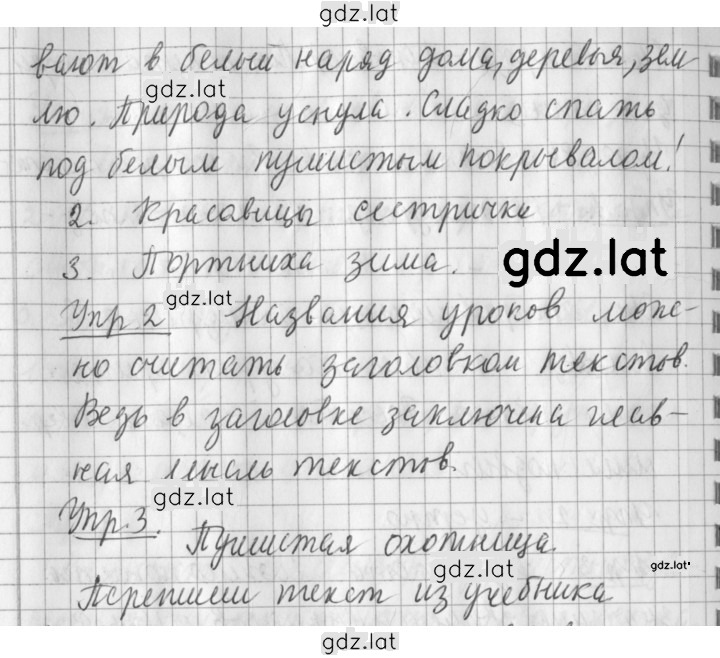 gdz.lat
вают в белый наряд дома, деревья, зем-
gdz.lat
лю. Природа уснула. Сладко спать
под белым пушистым покрывалом!
2. Красавицы сестрички
3. Портниха зима.
gdz.lat
gdz.lat
Упр 2 Названия уроков мож-
но считать заголовком текстов.
Ведь в заголовке заключена глав-
ная мысль текстов.
gdz.lat
Упр. 3.
Пушистая охотница.
gdz.lat
gdz.lat
Перепиши текст из учебника
gdz.lat